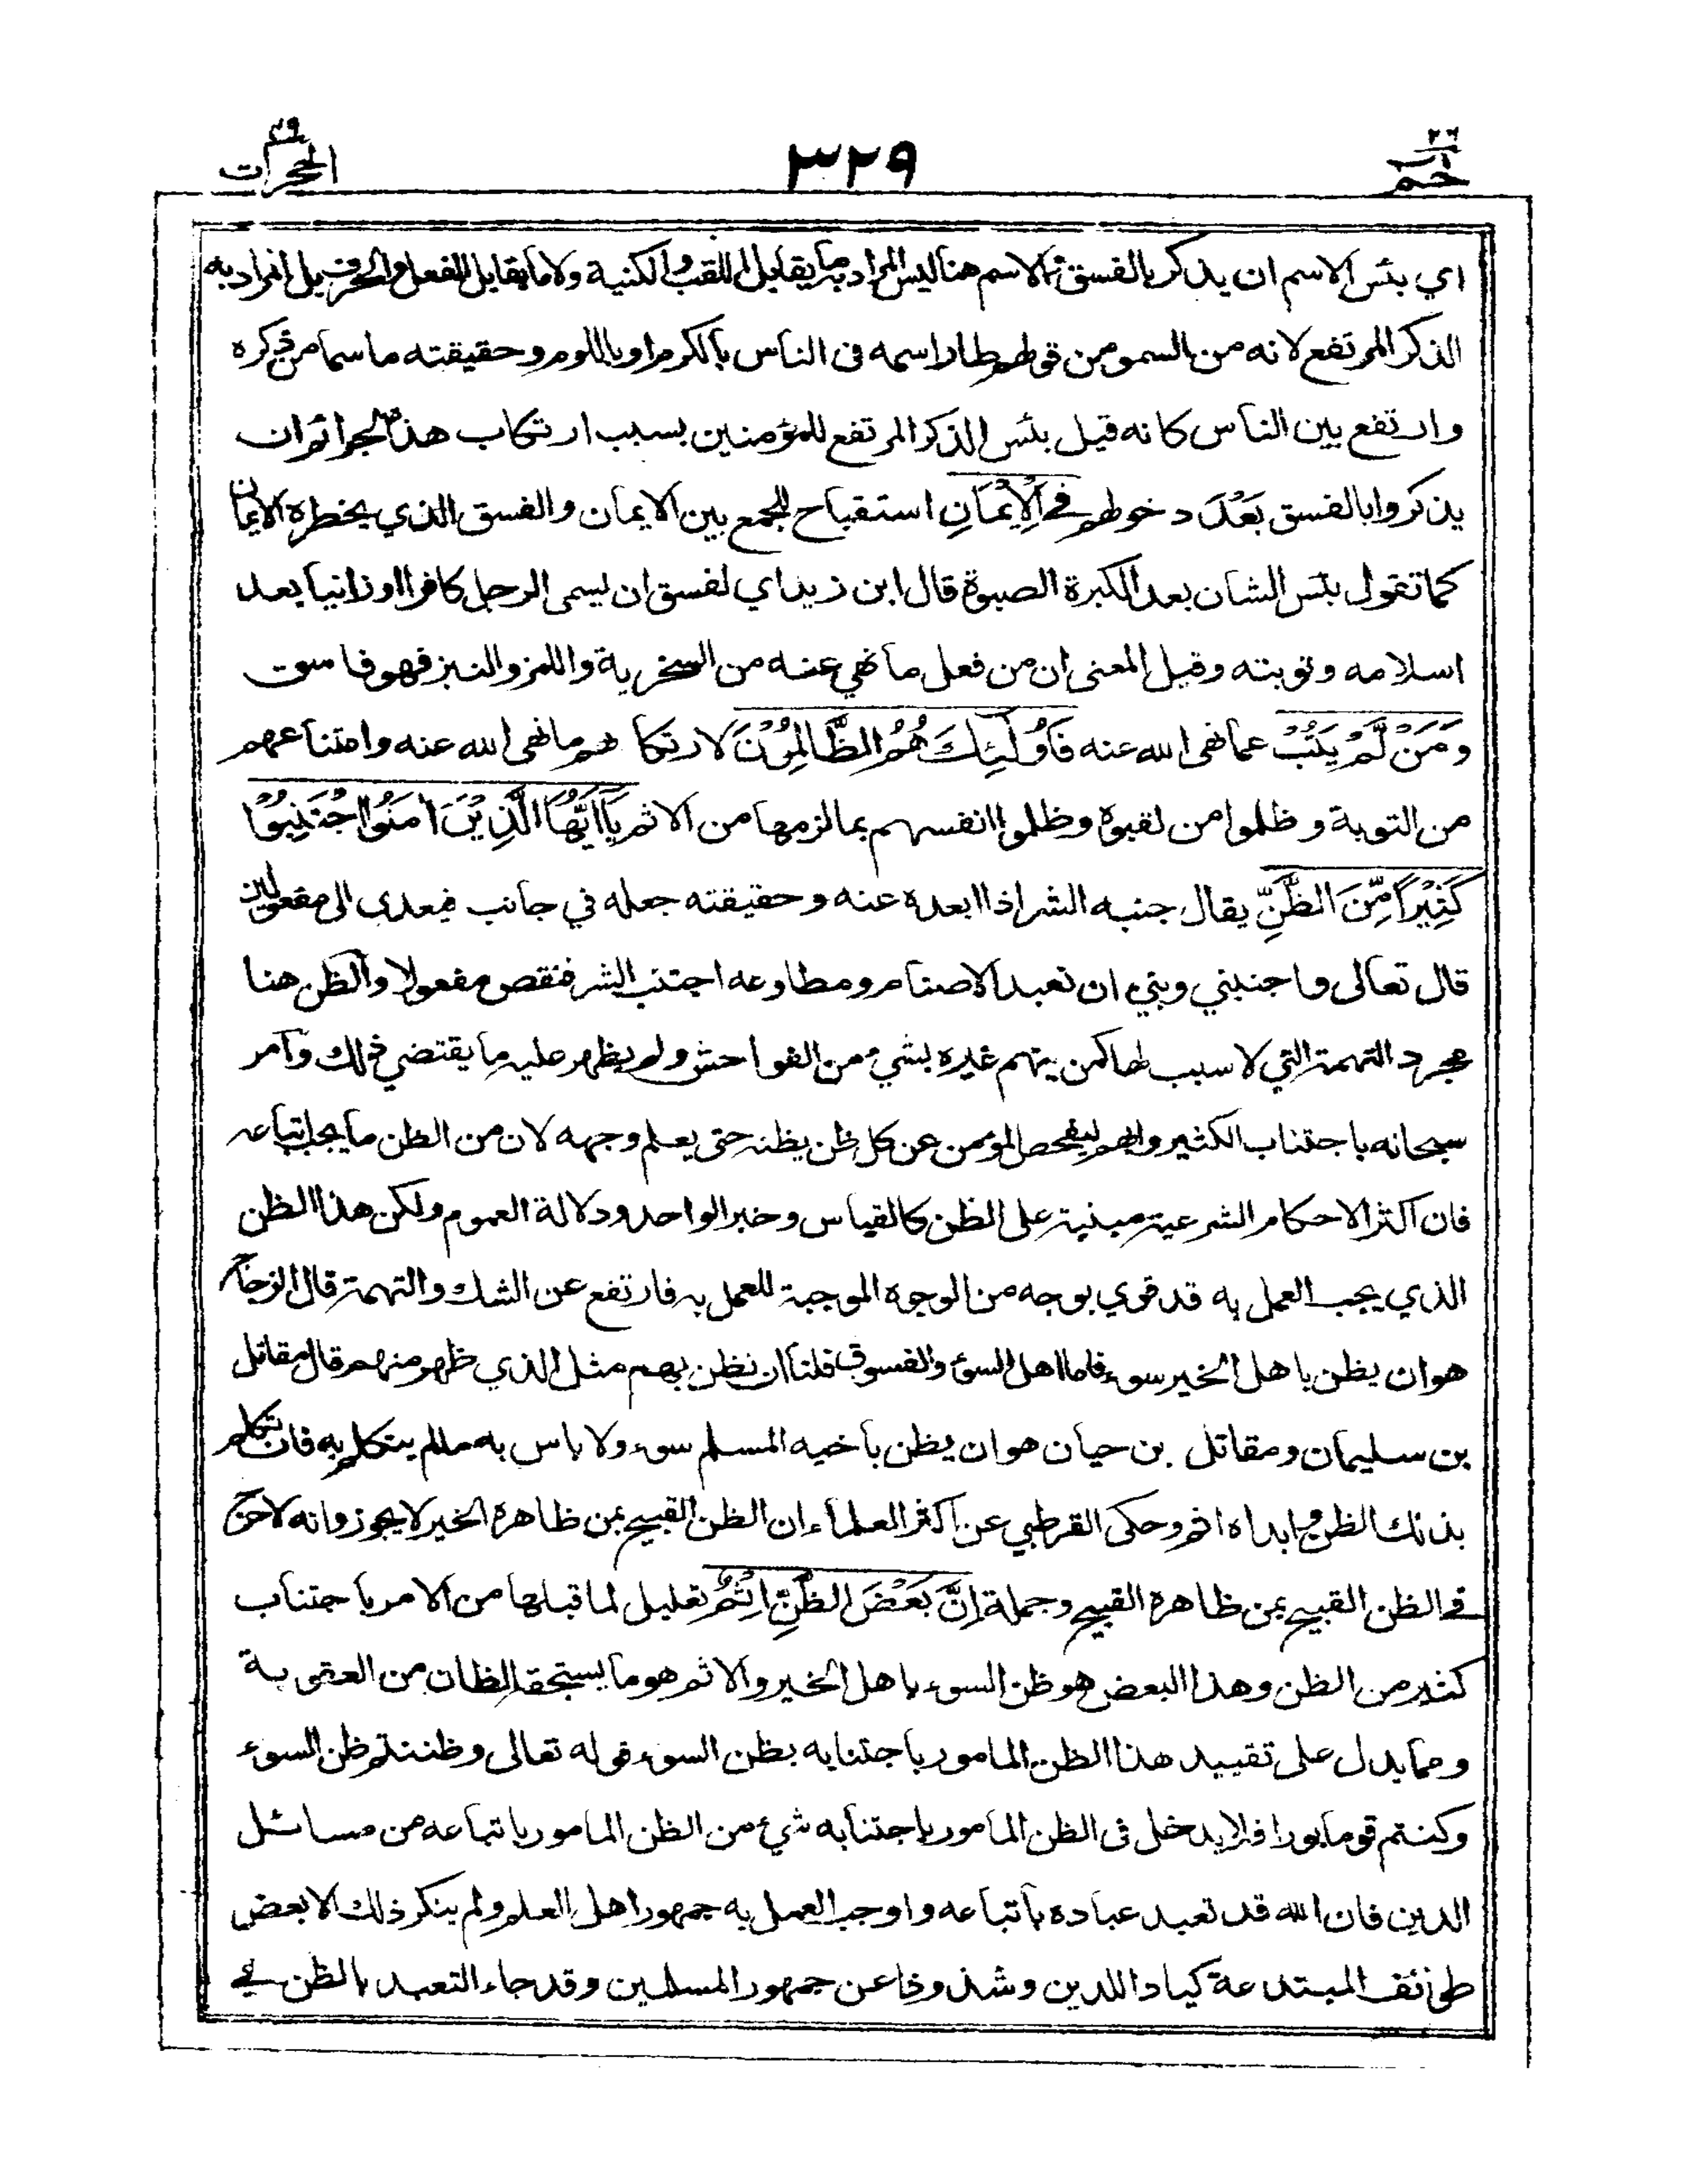 ٢٦
حم
٣٢٩
٤٩
الحجرات
اي بئس الاسم ان يذكر بالفسق ثم الاسم هنا ليس المراد به ما يقابل اللقب والكنية ولا ما يقابل الفعل والحرف بل المراد به
الذكر المرتفع لانه من السمو من قولهم طار اسمه فى الناس بالكرم او باللوم وحقيقته ما سما من ذكره
وارتفع بين الناس كانه قيل بئس الذكر المرتفع للمؤمنين بسبب ارتكاب هذه الجرائم ان
يذكروا بالفسق بَعْدَ دخولهم في الْاِيْمَانِ استقباح للجمع بين الايمان والفسق الذي يحظره الايمان
كما تقول بئس الشان بعد الكبرة الصبوة قال ابن زيد اي لفسق ان يسمى الرجل كافرا او زانيا بعد
اسلامه وتوبته وقيل المعنى ان من فعل ما نهي عنه من السخرية واللمز والنبز فهو فاسق
وَمَنْ لَّمْ يَتُبْ عما نهى الله عنه فَاُولٰئِكَ هُمُ الظَّالِمُوْنَ لارتكابهم ما نهى الله عنه وامتناعهم
من التوبة وظلموا من لقبوه وظلموا انفسهم بما لزمها من الاثم يَآاَيُّهَا الَّذِيْنَ اٰمَنُوا اجْتَنِبُوْا
كَثِيْرًا مِّنَ الظَّنِّ يقال جنبه الشر اذا ابعده عنه وحقيقته جعله في جانب فيعدى الى مفعولين
قال تعالى واجنبني وبني ان نعبد الاصنام ومطاوعه اجتنب الشر فنقص مفعولا والظن هنا
مجرد التهمة التي لا سبب لها كمن يتهم غيره بشيء من الفواحش ولم يظهر عليه ما يقتضي ذلك وامر
سبحانه باجتناب الكثير وابهم ليفحص المؤمن عن كل ظن يظنه حتى يعلم وجهه لان من الظن ما يجب اتباعه
فان اكثر الاحكام الشرعية مبنية على الظن كالقياس وخبر الواحد ودلالة العموم ولكن هذا الظن
الذي يجب العمل به قد قوي بوجه من الوجوه الموجبة للعمل به فارتفع عن الشك والتهمة قال الزجاج
هو ان يظن باهل الخير سوء فاما اهل السوء والفسوق فلنا ان نظن بهم مثل الذي ظهر منهم قال مقاتل
بن سليمان ومقاتل بن حيان هو ان يظن باخيه المسلم سوء ولا باس به ما لم يتكلم به فان تكلم
بذلك الظن وابداه اثم وحكى القرطبي عن اكثر العلماء ان الظن القبيح بمن ظاهره الخير لا يجوز وانه لا حرج
في الظن القبيح بمن ظاهره القبيح وجملة اِنَّ بَعْضَ الظَّنِّ اِثْمٌ تعليل لما قبلها من الامر باجتناب
كثير من الظن وهذا البعض هو ظن السوء باهل الخير والاثم هو ما يستحقه الظان من العقوبة
ومما يدل على تقييد هذا الظن المامور باجتنابه بظن السوء قوله تعالى وظننتم ظن السوء
وكنتم قوما بورا فلا يدخل فى الظن المامور باجتنابه شيء من الظن المامور باتباعه من مسائل
الدين فان الله قد تعبد عباده باتباعه واوجب العمل به جمهور اهل العلم ولم ينكر ذلك الا بعض
طوائف المبتدعة كيادا للدين وشذوذا عن جمهور المسلمين وقد جاء التعبد بالظن في